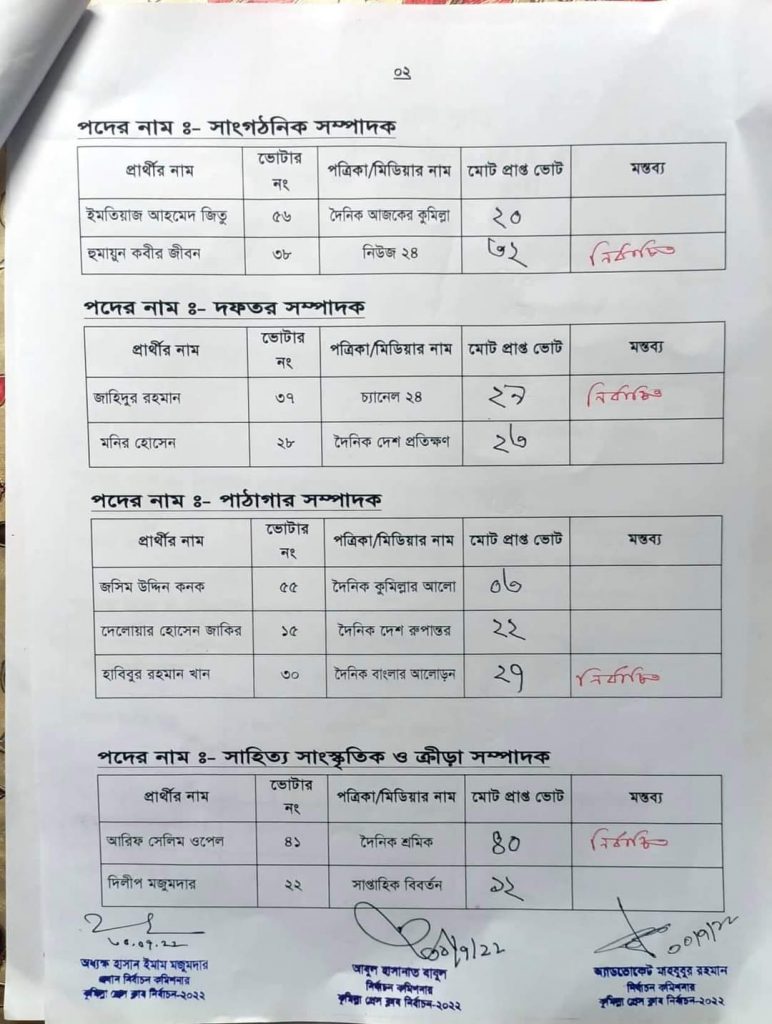 ০২
পদের নাম ঃ- সাংগঠনিক সম্পাদক
প্রার্থীর নাম ভোটার নং পত্রিকা/মিডিয়ার নাম মোট প্রাপ্ত ভোট মন্তব্য
ইমতিয়াজ আহমেদ জিতু ৫৬ দৈনিক আজকের কুমিল্লা ২০
হুমায়ুন কবীর জীবন ৩৮ নিউজ ২৪ ৩২ নির্বাচিত
পদের নাম ঃ- দফতর সম্পাদক
প্রার্থীর নাম ভোটার নং পত্রিকা/মিডিয়ার নাম মোট প্রাপ্ত ভোট মন্তব্য
জাহিদুর রহমান ৩৭ চ্যানেল ২৪ ২৯ নির্বাচিত
মনির হোসেন ২৮ দৈনিক দেশ প্রতিক্ষণ ২৩
পদের নাম ঃ- পাঠাগার সম্পাদক
প্রার্থীর নাম ভোটার নং পত্রিকা/মিডিয়ার নাম মোট প্রাপ্ত ভোট মন্তব্য
জসিম উদ্দিন কনক ৫৫ দৈনিক কুমিল্লার আলো ০৩
দেলোয়ার হোসেন জাকির ১৫ দৈনিক দেশ রুপান্তর ২২
হাবিবুর রহমান খান ৩০ দৈনিক বাংলার আলোড়ন ২৭ নির্বাচিত
পদের নাম ঃ- সাহিত্য সাংস্কৃতিক ও ক্রীড়া সম্পাদক
প্রার্থীর নাম ভোটার নং পত্রিকা/মিডিয়ার নাম মোট প্রাপ্ত ভোট মন্তব্য
আরিফ সেলিম ওপেল ৪১ দৈনিক শ্রমিক ৪০ নির্বাচিত
দিলীপ মজুমদার ২২ সাপ্তাহিক বিবর্তন ১২
অধ্যক্ষ হাসান ইমাম মজুমদার
প্রধান নির্বাচন কমিশনার
কুমিল্লা প্রেস ক্লাব নির্বাচন-২০২২
আবুল হাসানাত বাবুল
নির্বাচন কমিশনার
কুমিল্লা প্রেস ক্লাব নির্বাচন-২০২২
অ্যাডভোকেট মাহবুবুর রহমান
নির্বাচন কমিশনার
কুমিল্লা প্রেস ক্লাব নির্বাচন-২০২২